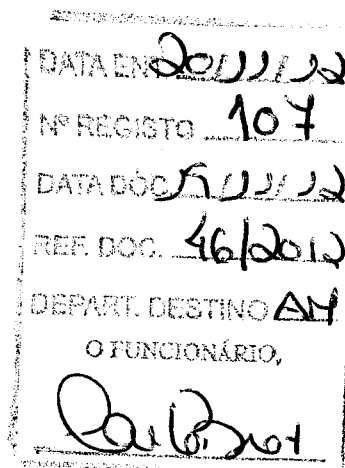 DATA ENT 20/11/12
Nº REGISTO 107
DATA DOC. /11/12
REF. DOC. 46/2012
DEPART. DESTINO AM
O FUNCIONÁRIO,